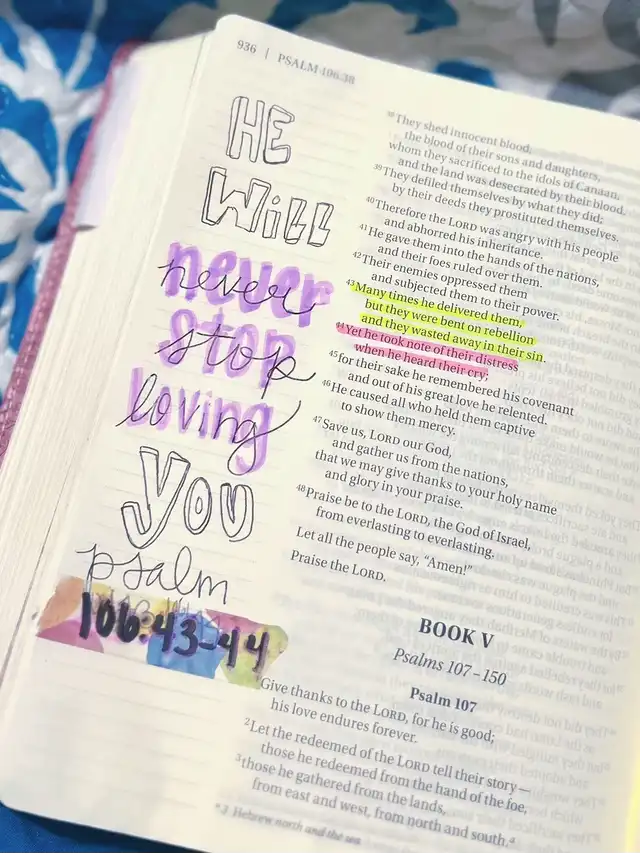 936 | PSALM 106:38
HE
WiLL
never
stop
loving
you
psalm
106:43-44
³⁸They shed innocent blood,
the blood of their sons and daughters,
whom they sacrificed to the idols of Canaan,
and the land was desecrated by their blood.
³⁹They defiled themselves by what they did;
by their deeds they prostituted themselves.
⁴⁰Therefore the LORD was angry with his people
and abhorred his inheritance.
⁴¹He gave them into the hands of the nations,
and their foes ruled over them.
⁴²Their enemies oppressed them
and subjected them to their power.
⁴³Many times he delivered them,
but they were bent on rebellion
and they wasted away in their sin.
⁴⁴Yet he took note of their distress
when he heard their cry;
⁴⁵for their sake he remembered his covenant
and out of his great love he relented.
⁴⁶He caused all who held them captive
to show them mercy.
⁴⁷Save us, LORD our God,
and gather us from the nations,
that we may give thanks to your holy name
and glory in your praise.
⁴⁸Praise be to the LORD, the God of Israel,
from everlasting to everlasting.
Let all the people say, “Amen!”
Praise the LORD.
BOOK V
Psalms 107–150
Psalm 107
Give thanks to the LORD, for he is good;
his love endures forever.
²Let the redeemed of the LORD tell their story—
those he redeemed from the hand of the foe,
³those he gathered from the lands,
from east and west, from north and south.ᵃ
ᵃ 3 Hebrew north and the sea